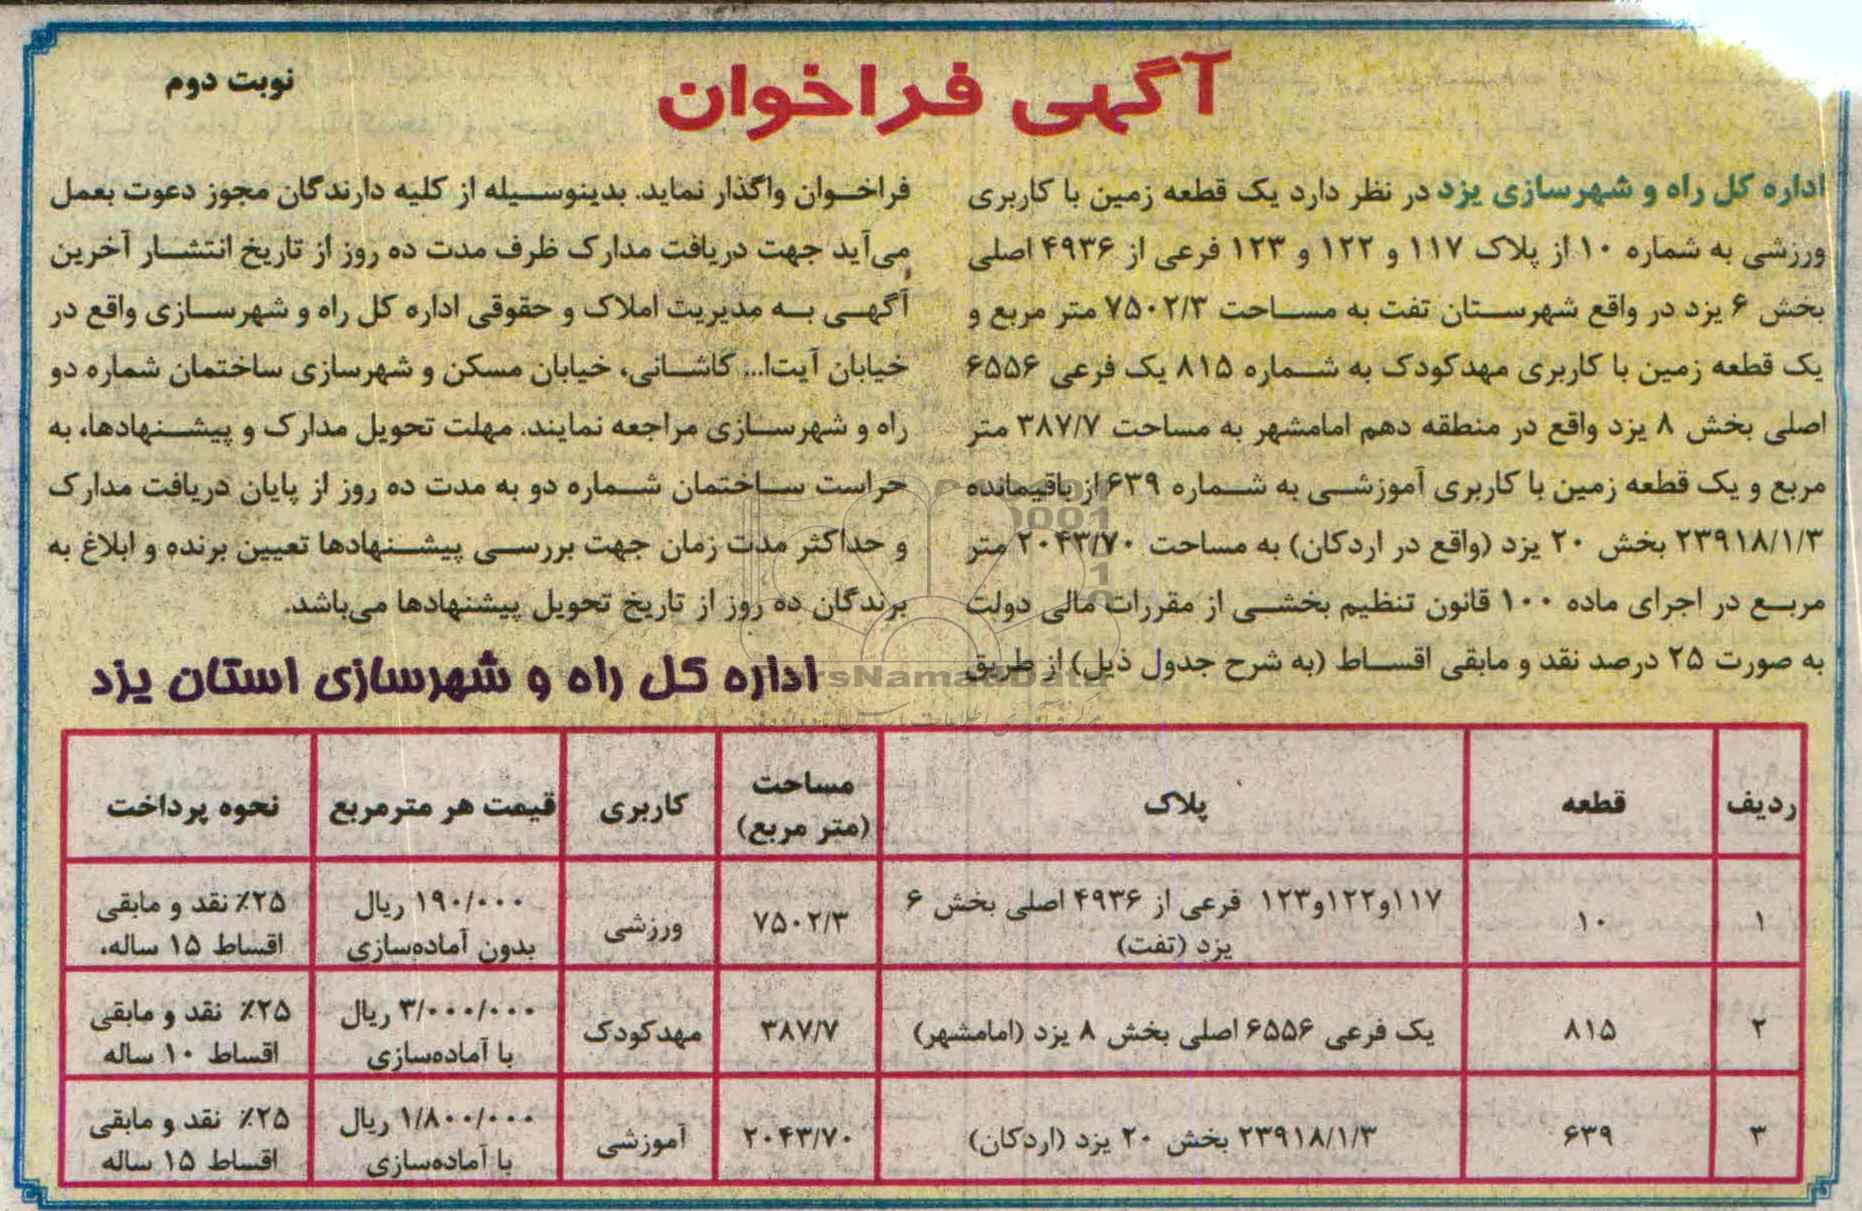 آگهی فراخوان
نوبت دوم
اداره کل راه و شهرسازی یزد در نظر دارد یک قطعه زمین با کاربری
ورزشی به شماره ۱۰ از پلاک ۱۱۷ و ۱۲۲ و ۱۲۳ فرعی از ۴۹۳۶ اصلی
بخش ۶ یزد در واقع شهرستان تفت به مساحت ۷۵۰۲/۳ متر مربع و
یک قطعه زمین با کاربری مهدکودک به شماره ۸۱۵ یک فرعی ۶۵۵۶
اصلی بخش ۸ یزد واقع در منطقه دهم امامشهر به مساحت ۳۸۷/۷ متر
مربع و یک قطعه زمین با کاربری آموزشی به شماره ۶۳۹ از باقیمانده
۲۳۹۱۸/۱/۳ بخش ۲۰ یزد (واقع در اردکان) به مساحت ۲۰۴۳/۷۰ متر
مربع در اجرای ماده ۱۰۰ قانون تنظیم بخشی از مقررات مالی دولت
به صورت ۲۵ درصد نقد و مابقی اقساط (به شرح جدول ذیل) از طریق
فراخوان واگذار نماید. بدینوسیله از کلیه دارندگان مجوز دعوت بعمل
می‌آید جهت دریافت مدارک ظرف مدت ده روز از تاریخ انتشار آخرین
آگهی به مدیریت املاک و حقوقی اداره کل راه و شهرسازی واقع در
خیابان آیت‌ا... کاشانی، خیابان مسکن و شهرسازی ساختمان شماره دو
راه و شهرسازی مراجعه نمایند. مهلت تحویل مدارک و پیشنهادها، به
حراست ساختمان شماره دو به مدت ده روز از پایان دریافت مدارک
و حداکثر مدت زمان جهت بررسی پیشنهادها تعیین برنده و ابلاغ به
برندگان ده روز از تاریخ تحویل پیشنهادها می‌باشد.
اداره کل راه و شهرسازی استان یزد
ردیف قطعه پلاک مساحت (متر مربع) کاربری قیمت هر مترمربع نحوه پرداخت
۱ ۱۰ ۱۱۷و۱۲۲و۱۲۳ فرعی از ۴۹۳۶ اصلی بخش ۶ یزد (تفت) ۷۵۰۲/۳ ورزشی ۱۹۰/۰۰۰ ریال بدون آماده‌سازی ۲۵٪ نقد و مابقی اقساط ۱۵ ساله.
۲ ۸۱۵ یک فرعی ۶۵۵۶ اصلی بخش ۸ یزد (امامشهر) ۳۸۷/۷ مهدکودک ۳/۰۰۰/۰۰۰ ریال با آماده‌سازی ۲۵٪ نقد و مابقی اقساط ۱۰ ساله
۳ ۶۳۹ ۲۳۹۱۸/۱/۳ بخش ۲۰ یزد (اردکان) ۲۰۴۳/۷۰ آموزشی ۱/۸۰۰/۰۰۰ ریال با آماده‌سازی ۲۵٪ نقد و مابقی اقساط ۱۵ ساله